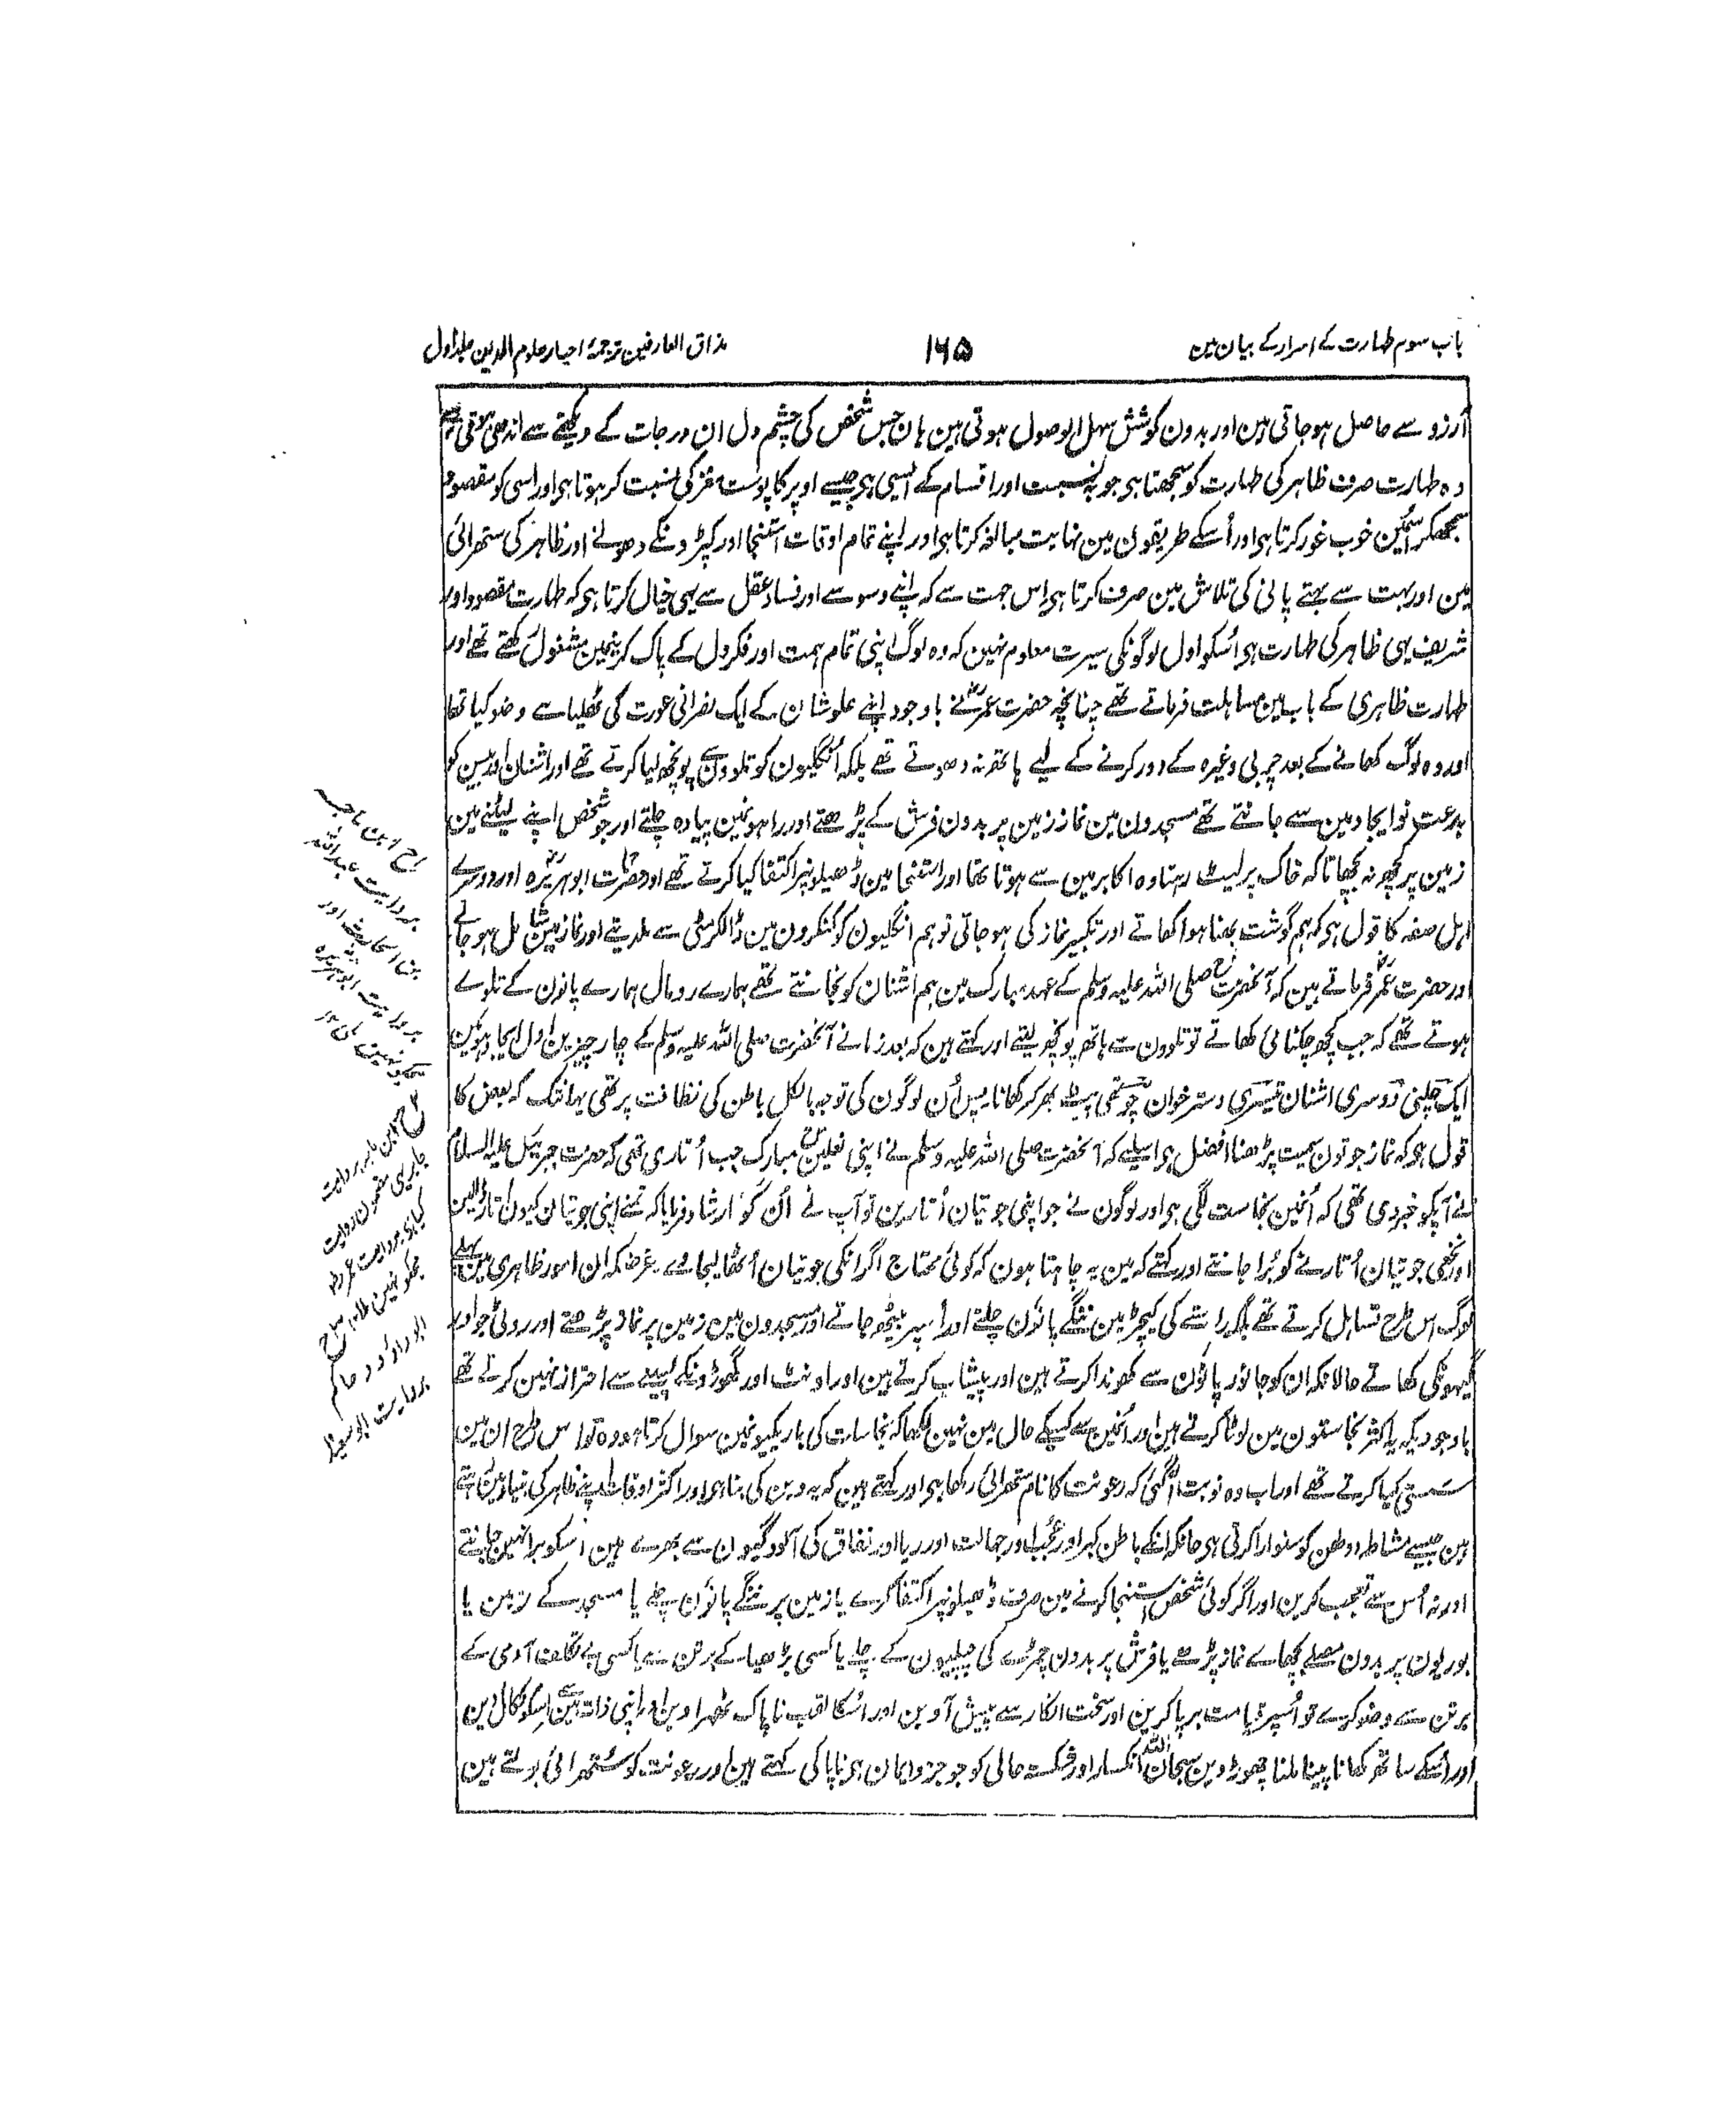 باب سوم طہارت کے اسرار کے بیان مین
۱۶۵
مذاق العارفین ترجمۂ احیاء علوم الدین جلد اول
آرزو سے حاصل ہو جاتی ہین اور بدون کوشش سہل الوصول ہوتی ہین ہان جس شخص کی چشم دل ان درجات کے دیکھنے سے اندھی ہوتی ہے
وہ طہارت صرف ظاہر کی طہارت کو سمجھتا ہی جو بہ نسبت اور اقسام کے ایسی ہی جیسے اوپر کا پوست مغز کی نسبت کر ہوتا ہی اور اسی کو مقصود
سمجھکر اسمین خوب غور کرتا ہی اور اُسکے طریقون مین نہایت مبالغہ کرتا ہی اور اپنے تمام اوقات استنجا اور کپڑونکے دھونے اور ظاہر کی ستھرائی
مین اور بہت سے بہتے پانی کی تلاش مین صرف کرتا ہی اس جہت سے کہ اپنے وسوسے اور فساد عقل سے یہی خیال کرتا ہی کہ طہارت مقصود اور
شریف یہی ظاہر کی طہارت ہی اُسکو اول لوگونکی سیرت معلوم نہین کہ وہ لوگ اپنی تمام ہمت اور فکر دل کے پاک کرنیمین مشغول رکھتے تھے اور
طہارت ظاہری کے باب مین مساہلت فرماتے تھے چنانچہ حضرت عمرؓ نے باوجود اپنے علو شان کے ایک نصرانی عورت کی ٹھلیا سے وضو کیا تھا
اور وہ لوگ کھانے کے بعد چربی وغیرہ کے دور کرنے کے لیے ہاتھ نہ دھوتے تھے بلکہ اُنگلیون کو تلوون سے پونچھ لیا کرتے تھے اور اشنان اور بیسن کو
بدعت نو ایجاد مین سے جانتے تھے مسجدون مین نماز زمین پر بدون فرش کے پڑھتے اور راہونمین پیادہ چلتے اور جو شخص اپنے لیٹنے مین
زمین پر کچھ نہ بچھاتا کہ خاک پر لیٹ رہتا وہ اکابر مین سے ہوتا تھا اور استنجا مین ڈھیلونپر اکتفا کیا کرتے تھے اور حضرت ابوہریرہؓ اور دوسرے
اہل صفہ کا قول ہی کہ ہم گوشت بھنا ہوا کھاتے اور تکبیر نماز کی ہو جاتی تو ہم انگلیون کو کنکرون مین ڈالکر مٹی سے ملدیتے اور نماز مین شامل ہو جاتے
اور حضرت عمرؓ فرماتے ہین کہ آنحضرت صلی اللہ علیہ وسلم کے عہد مبارک مین ہم اشنان کو نجانتے تھے ہمارے رومال ہمارے پانون کے تلوے
ہوتے تھے کہ جب کچھ چکنائی کھاتے تو تلوون سے ہاتھ پونچھ لیتے اور کہتے ہین کہ بعد زمانے آنحضرت صلی اللہ علیہ وسلم کے چار چیزین اول ایجاد ہوئین
ایک چھلنی دوسری اشنان تیسری دسترخوان چوتھی پیٹ بھر کر کھانا پس اُن لوگون کی توجہ بالکل باطن کی نظافت پر تھی یہانتک کہ بعض کا
قول ہو کہ نماز جوتون سمیت پڑھنا افضل ہی اسلیے کہ آنحضرت صلی اللہ علیہ وسلم نے اپنی نعلین مبارک جب اُتاری تھی کہ حضرت جبرئیل علیہ السلام
نے آپکو خبر دی تھی کہ اُنمین نجاست لگی ہی اور لوگون نے جو اپنی جوتیان اُتارین تو آپ نے اُن کو ارشاد فرمایا کہ تمنے اپنی جوتیان کیون اُتار ڈالین
اور نخعی جوتیان اُتارنے کو بُرا جانتے اور کہتے کہ مین یہ چاہتا ہون کہ کوئی محتاج اگر انکی جوتیان اُٹھا لیجاوے غرضکہ ان امور ظاہری مین پہلے
لوگ اس طرح تساہل کرتے تھے بلکہ راستے کی کیچڑ مین ننگے پانؤن چلتے اور اُسپر بیٹھ جاتے اور مسجدون مین زمین پر نماز پڑھتے اور روٹی جو اور
گیہونکی کھاتے حالانکہ ان کو جانور پاؤن سے کھوندا کرتے ہین اور پیشاب کرتے ہین اور اونٹ اور گھوڑونکے پسینے سے احتراز نہین کرتے تھے
باوجودیکہ یہ اکثر نجاستون مین لوٹا کرتے ہین اور اُنمین سے کسیکے حال مین نہین لکھا کہ نجاسات کی باریکیونمین سوال کرتا ہو وہ تو اس طرح ان مین
سستی کیا کرتے تھے اور اب وہ نوبت آ گئی کہ رعونت کا نام ستھرائی رکھا ہی اور کہتے ہین کہ یہ دین کی بنا ہی اور اکثر اوقات اپنے ظاہر کی بناؤ مین رہتے
ہین جیسے مشاطہ دولھن کو سنوارا کرتی ہی حالانکہ انکے باطن کبر اور عُجب اور جہالت اور ریا اور نفاق کی آلودگیون سے بھرے ہین اسکو برا نہین جانتے
اور نہ اُس سے تعجب کرین اور اگر کوئی شخص استنجا کرنے مین صرف ڈھیلونپر اکتفا کرے یا زمین پر ننگے پانؤن چلے یا مسجد کے زمین یا
بوریون پر بدون مصلے بچھاے نماز پڑھے یا فرش پر بدون چمڑے کی چپلیون کے چلے یا کسی بڑھیا کے برتن سے یا کسی بے تکلف آدمی کے
برتن سے وضو کرے تو اُسپر قیامت برپا کرین اور سخت انکار سے پیش آوین اور اُسکا لقب ناپاک ٹھہراوین اور اپنی ذات مین سے اسکو نکال دین
اور اسکے ساتھ کھانا پینا ملنا چھوڑ دین سبحان اللہ انکسار اور شکستہ حالی کو جو جزو ایمان ہی ناپاکی کہتے ہین اور رعونت کو ستھرائی بولتے ہین
ابن ماجہ
بروایت عبداللہ
بن الحارث اور
بروایت ابوہریرہ
نہین ملی ۱۲
ابن ماجہ بروایت
جابر یہی مضمون روایت
کیا ہی بروایت عمر رض
مجکو نہین ملا ۱۲
ابوداؤد و حاکم
بروایت ابوسعید